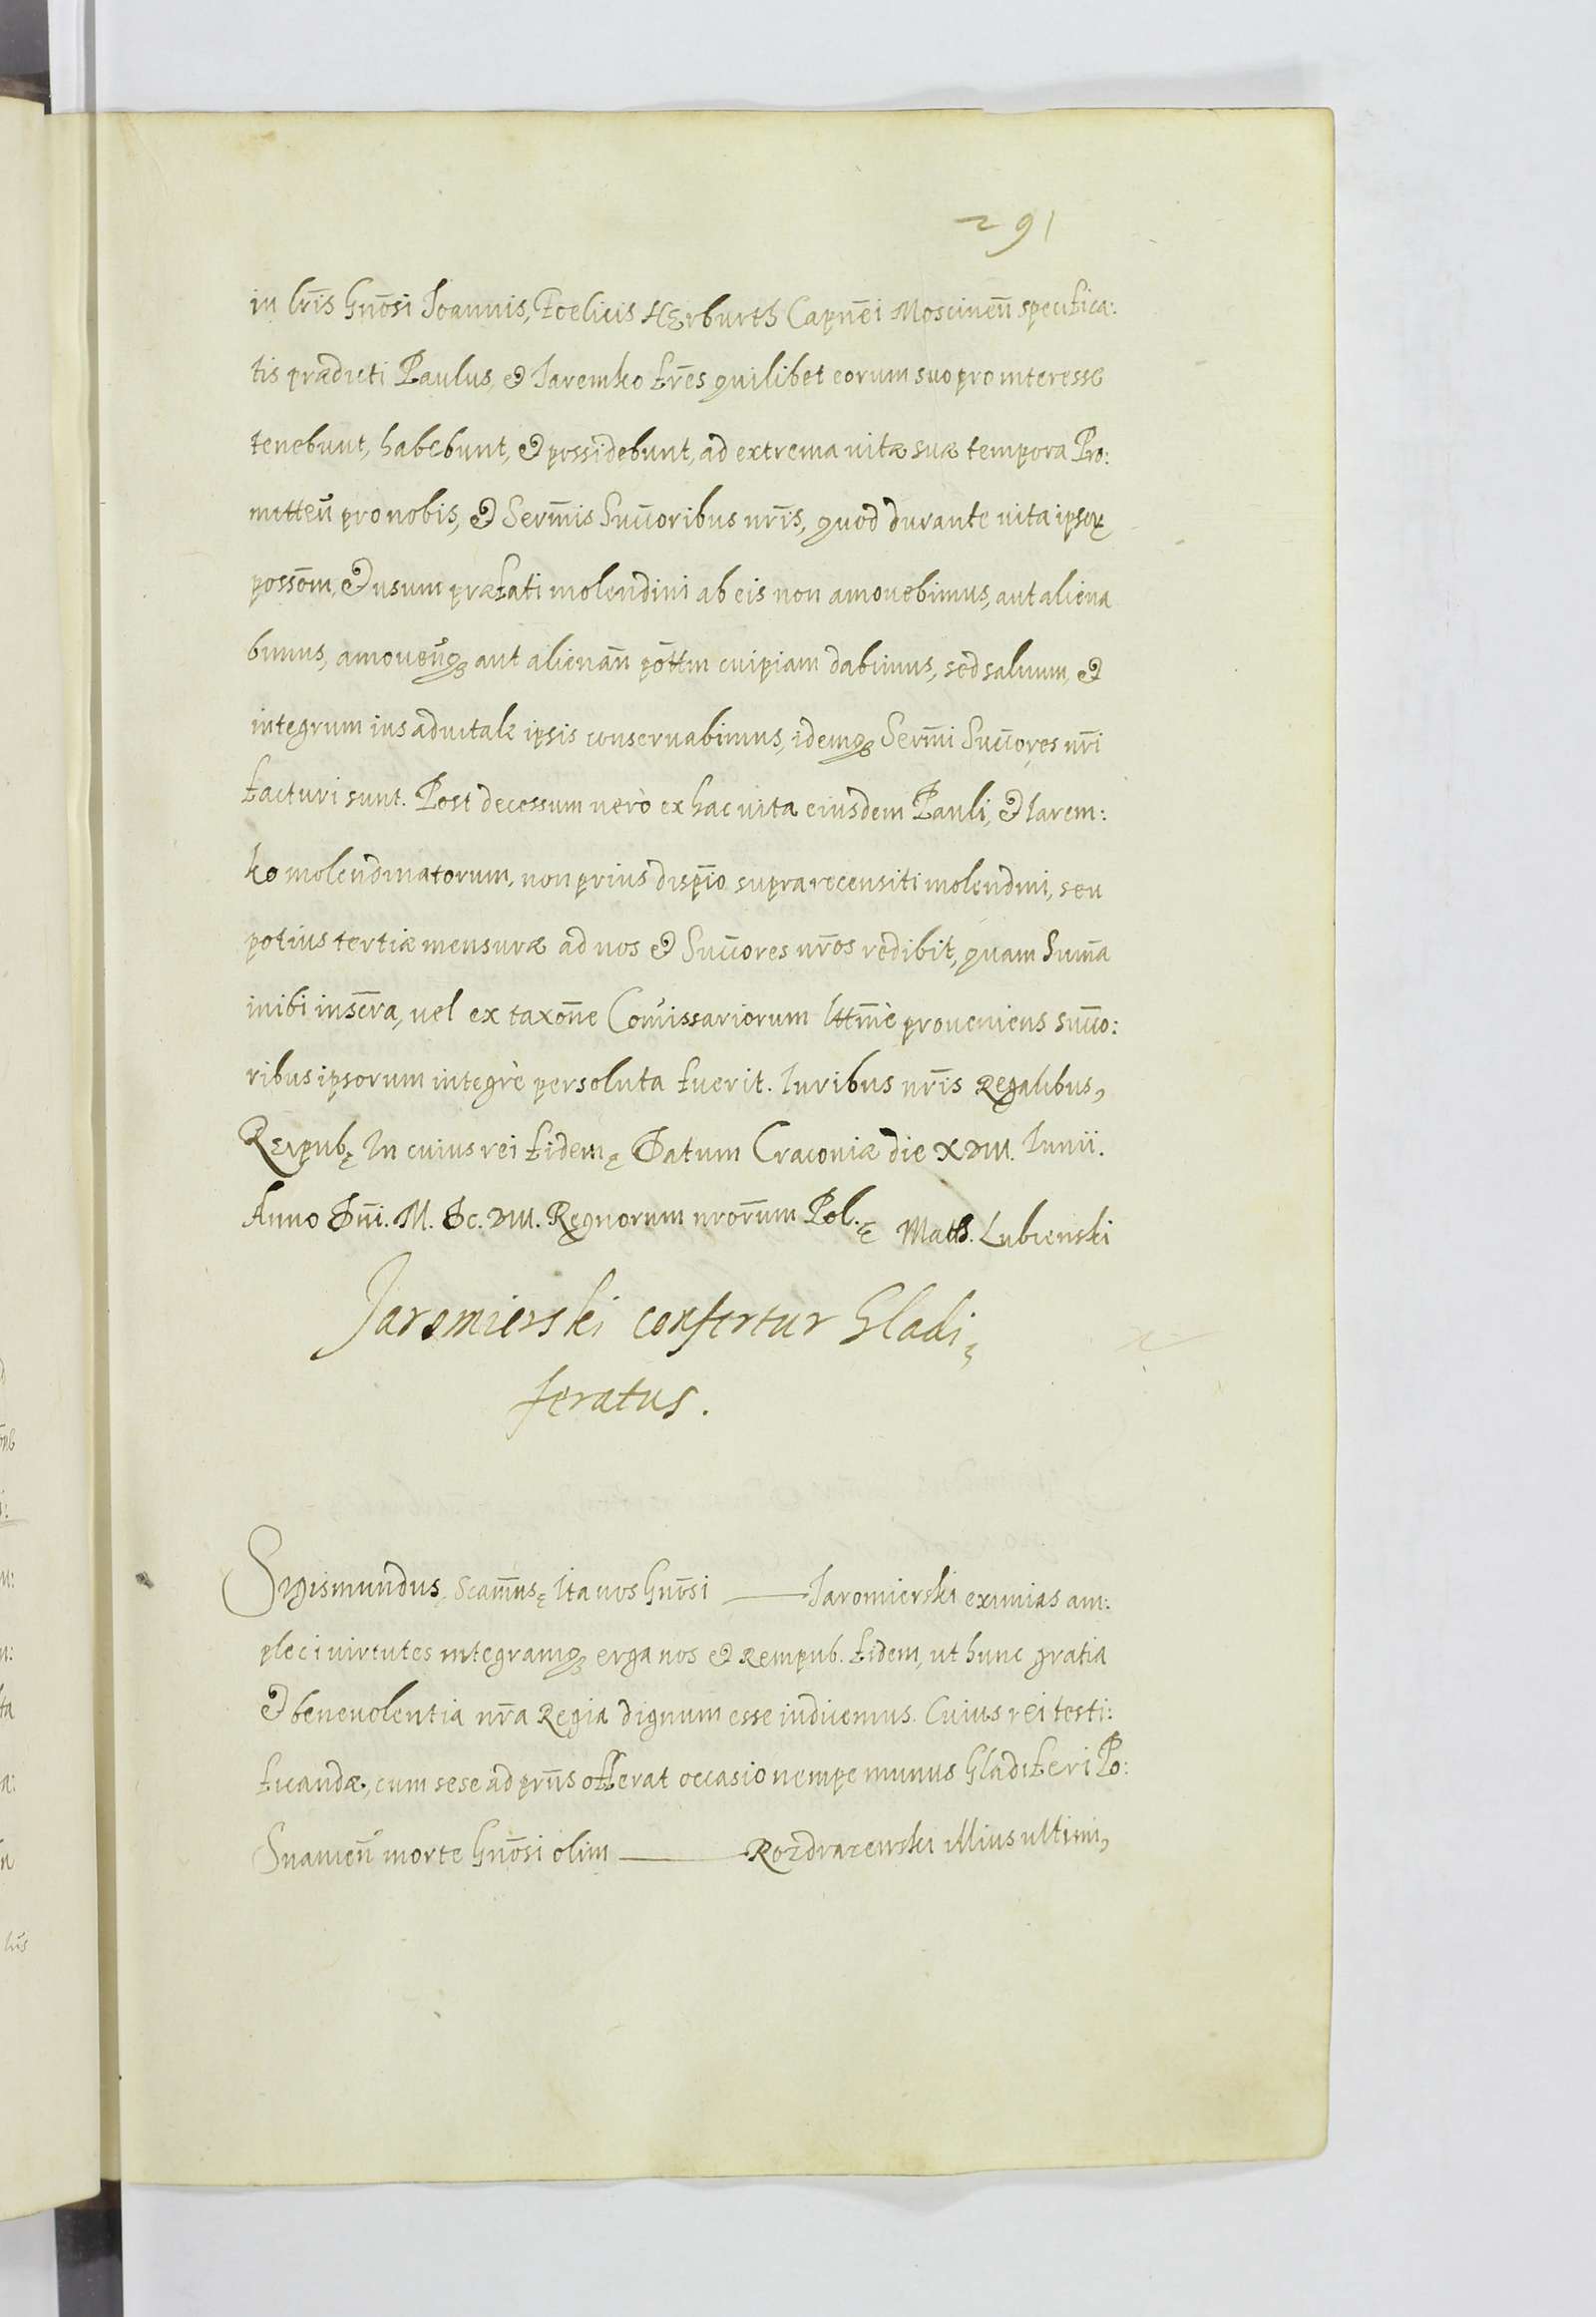 291
in lr̄is Gnōsi Joannis, Foelicis Herburth Capnēi Moscineñ specifica:
tis prædicti Paulus, & Jaremko fr̄es quilibet eorum suo pro interesse
tenebunt, habebunt, & possidebunt, ad extrema vitæ suæ tempora Pro:
mitteñ pro nobis, & Serm̄is Succ̄oribus nr̄is, quod durante vita ipsoꝝ
possōm, & usum præfati molendini ab eis non amovebimus, aut aliena
bimus, amoveñq̃ aut alienañ pōttm cuipiam dabimus, sed saluum, &
integrum ius aduitale ipsis conservabimus, idemq̃ Serm̄i Succ̄ores nr̄i
facturi sunt. Post decessum verò ex hac vita eiusdem Pauli, & Jarem:
ko molendinatorum, non prius disp̄io supra recensiti molendini, seu
potius tertiæ mensuræ ad nos & Succ̄ores nr̄os redibit, quam Sum̄a
inibi insēra, vel ex taxōne Com̄issariorum lttm̄è proveniens succ̄o:
ribus ipsorum integrè persoluta fuerit. Iuribus nr̄is Regalibus,
Reipub. ę In cuius rei fidem ę Datum Cracoviæ die XVIII. Iunii.
Anno Dn̄i. M. Dc. VIII. Regnorum nror̄um Pol. ę Math. Lubienski
Jaromierski confertur Gladi,
feratus.
Sigismundus, Scam̄us ę Ita nos Gnōsi ——— Jaromierski eximias am:
pleci virtutes integramq̃ erga nos & Rempub. fidem, ut hunc gratia
& benevolentia nr̄a Regia dignum esse iudicemus. Cuius rei testi:
ficandæ, cum sese ad prn̄s offerat occasio nempe munus Gladiferi Po:
Snanieñ morte Gnōsi olim ——— Rozdrazewski illius ultimi,